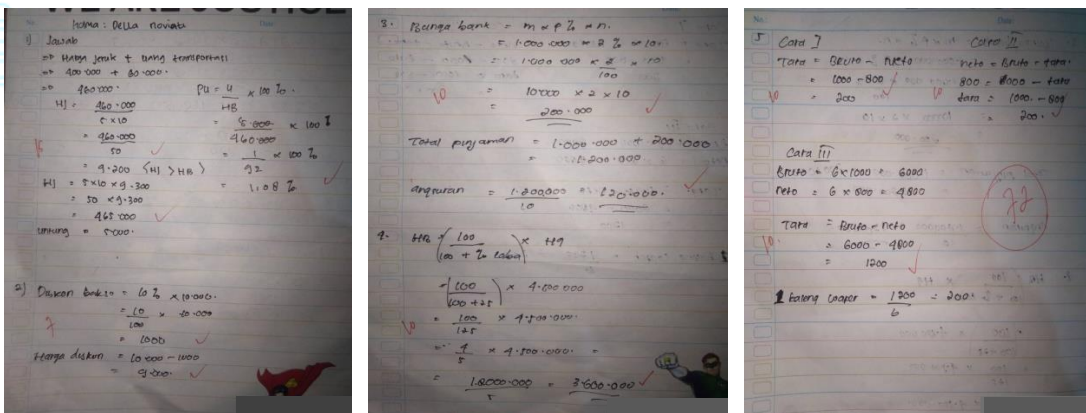 WE ARE JUSTICE
No.
Date:
Nama : Della Noviati
1) Jawab
=> Harga Jeruk + uang transportasi
=> 400.000 + 60.000.
=> 460.000
HJ = 460.000
5 x 10
= 460.000
50
= 9.200 (HJ > HB)
HJ = 5x10 x 9.300
= 50 x 9.300
= 465.000
untung = 5.000.
PU = U x 100 %.
HB
= 5.000 x 100 %
460.000
= 1 x 100 %
92
= 1,08 %
15
2) Diskon = 10 % x 10.000.
= 10 x 10.000
100
= 1000
Harga diskon = 10.000 - 1000
= 9.000.
7
3. Bunga bank = m x p % x n.
= 1.000.000 x 2 % x 10.
= 1.000.000 x 2 x 10
100
= 10.000 x 2 x 10
= 200.000
10
Total pinjaman = 1.000.000 + 200.000
= 1.200.000
angsuran = 1.200.000 = 120.000.
10
4. HB = (100) x HJ
100 + % laba
= (100) x 4.500.000
100 + 25
= 100 x 4.500.000.
125
= 4 x 4.500.000. =
5
= 18.000.000 = 3.600.000
5
10
No.
Date:
5 Cara I
Tara = Bruto - Neto
= 1000 - 800
= 200
10
Cara II
neto = Bruto - tara
800 = 1000 - tara
tara = 1000 - 800
= 200.
10
Cara III
Bruto = 6 x 1000 = 6000
neto = 6 x 800 = 4800
Tara = Bruto - neto
= 6000 - 4800
= 1200
10
1 kaleng = 1200 = 200.
6
72